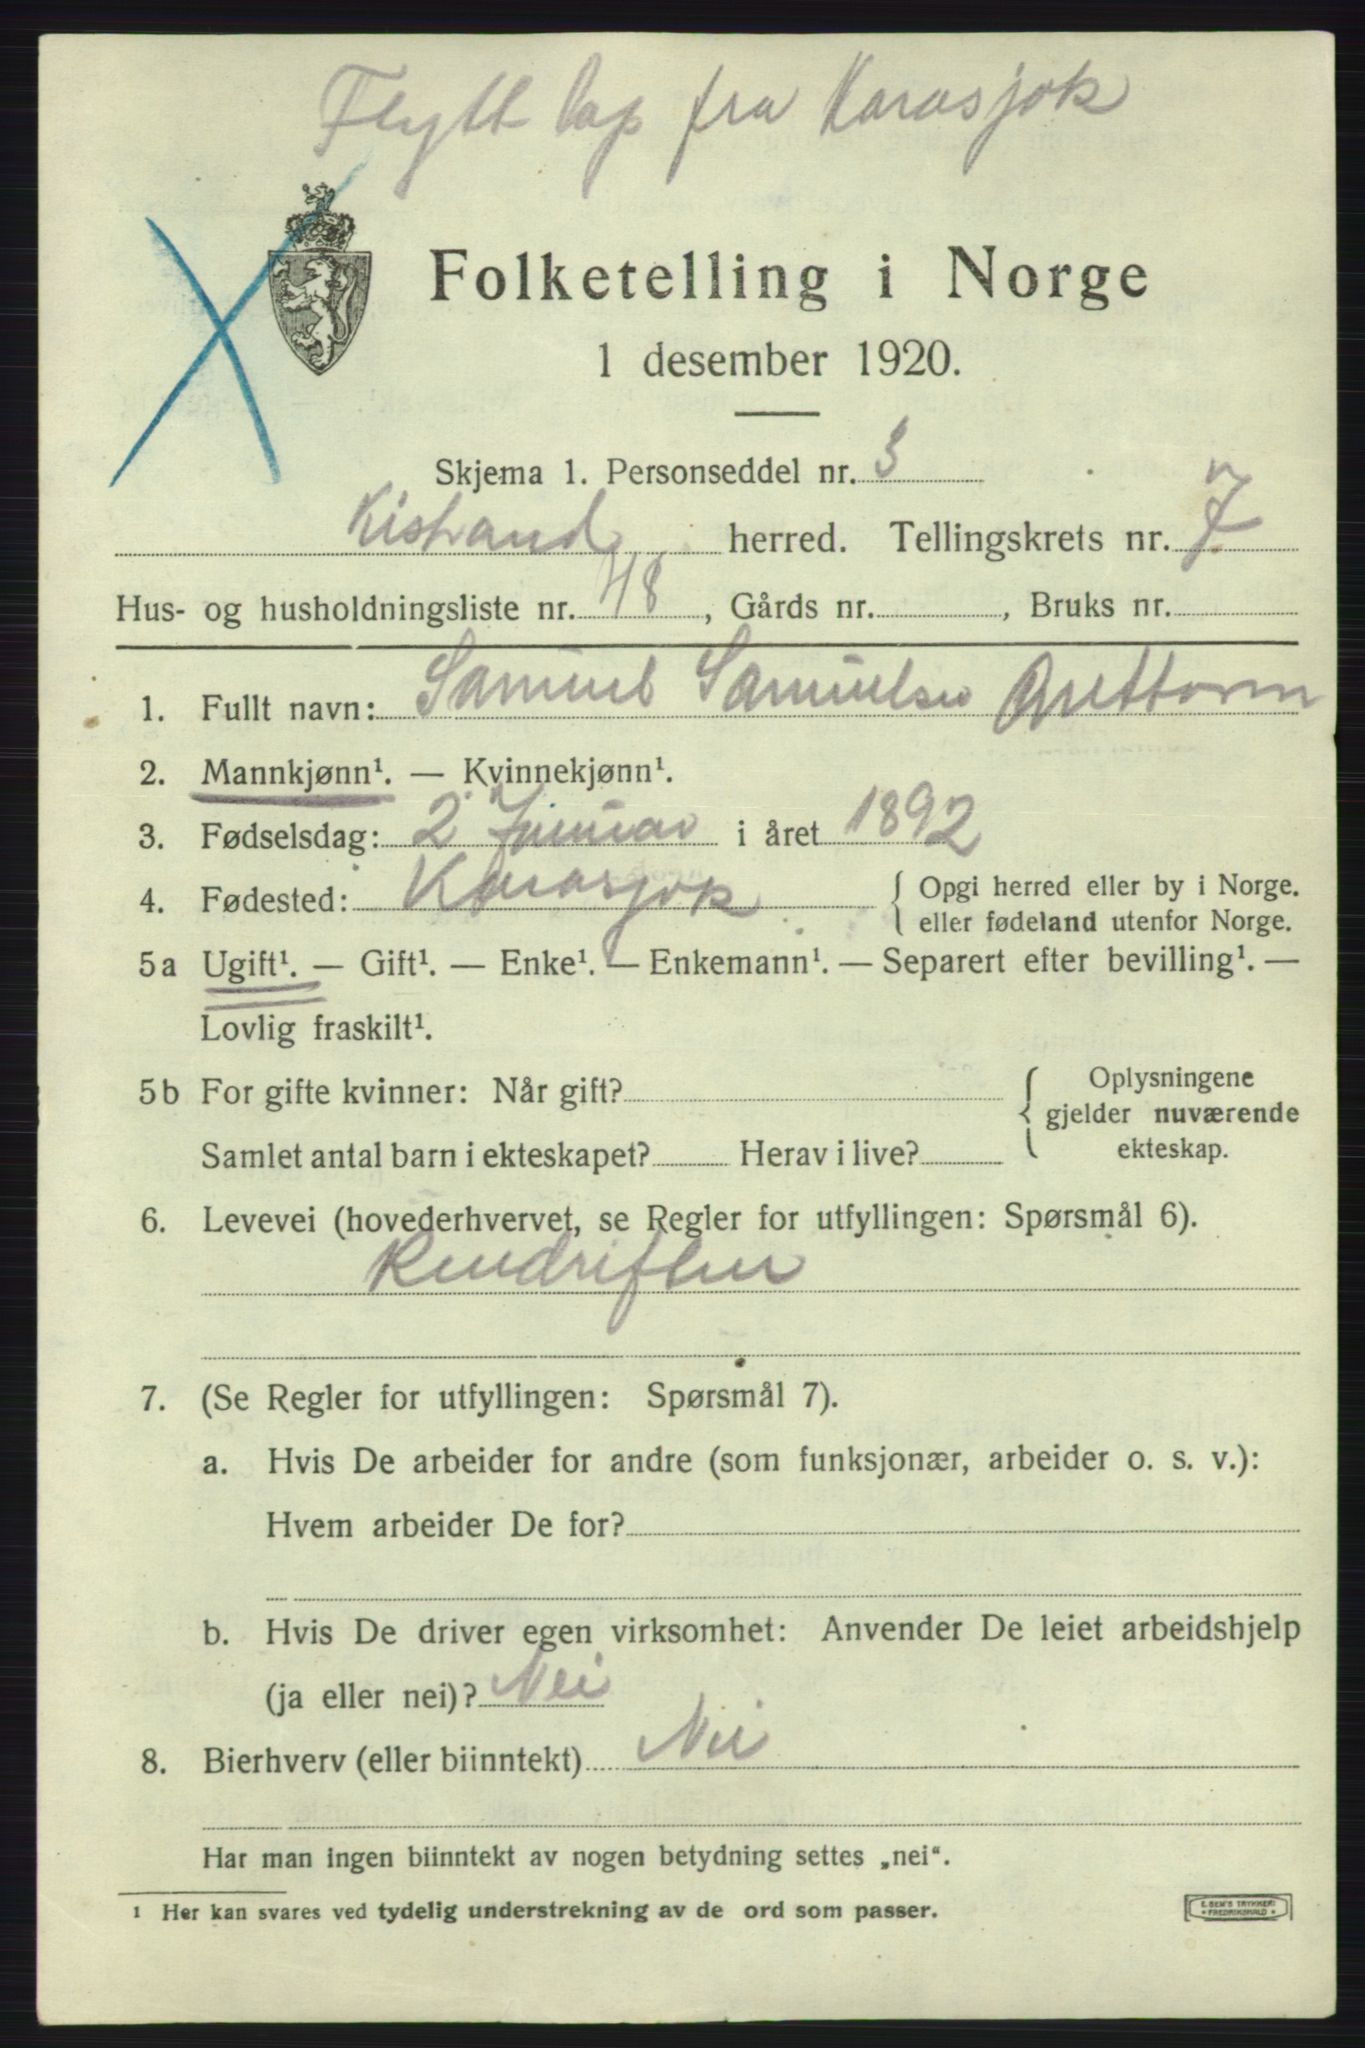 Flytt lap fra Karasjok
Folketelling i Norge
1 desember 1920.
Skjema 1. Personseddel nr. 3
Kistrand herred. Tellingskrets nr. 7
Hus- og husholdningsliste nr. 48, Gårds nr. , Bruks nr.
1. Fullt navn: Samuel Samuelsen
2. Mannkjønn¹. — Kvinnekjønn¹.
3. Fødselsdag: 2 Januar i året 1892
4. Fødested: Karasjok { Opgi herred eller by i Norge.
eller fødeland utenfor Norge.
5a Ugift¹. — Gift¹. — Enke¹. — Enkemann¹. — Separert efter bevilling¹. —
Lovlig fraskilt¹.
5b For gifte kvinner: Når gift? { Oplysningene
gjelder nuværende
Samlet antal barn i ekteskapet? Herav i live? ekteskap.
6. Levevei (hovederhvervet, se Regler for utfyllingen: Spørsmål 6).
Rendriften
7. (Se Regler for utfyllingen: Spørsmål 7).
a. Hvis De arbeider for andre (som funksjonær, arbeider o. s. v.):
Hvem arbeider De for?
b. Hvis De driver egen virksomhet: Anvender De leiet arbeidshjelp
(ja eller nei)? Nei
8. Bierhverv (eller biinntekt) Nei
Har man ingen biinntekt av nogen betydning settes „nei“.
1 Her kan svares ved tydelig understrekning av de ord som passer.
E. SEM'S TRYKKERI
FREDRIKSHALD